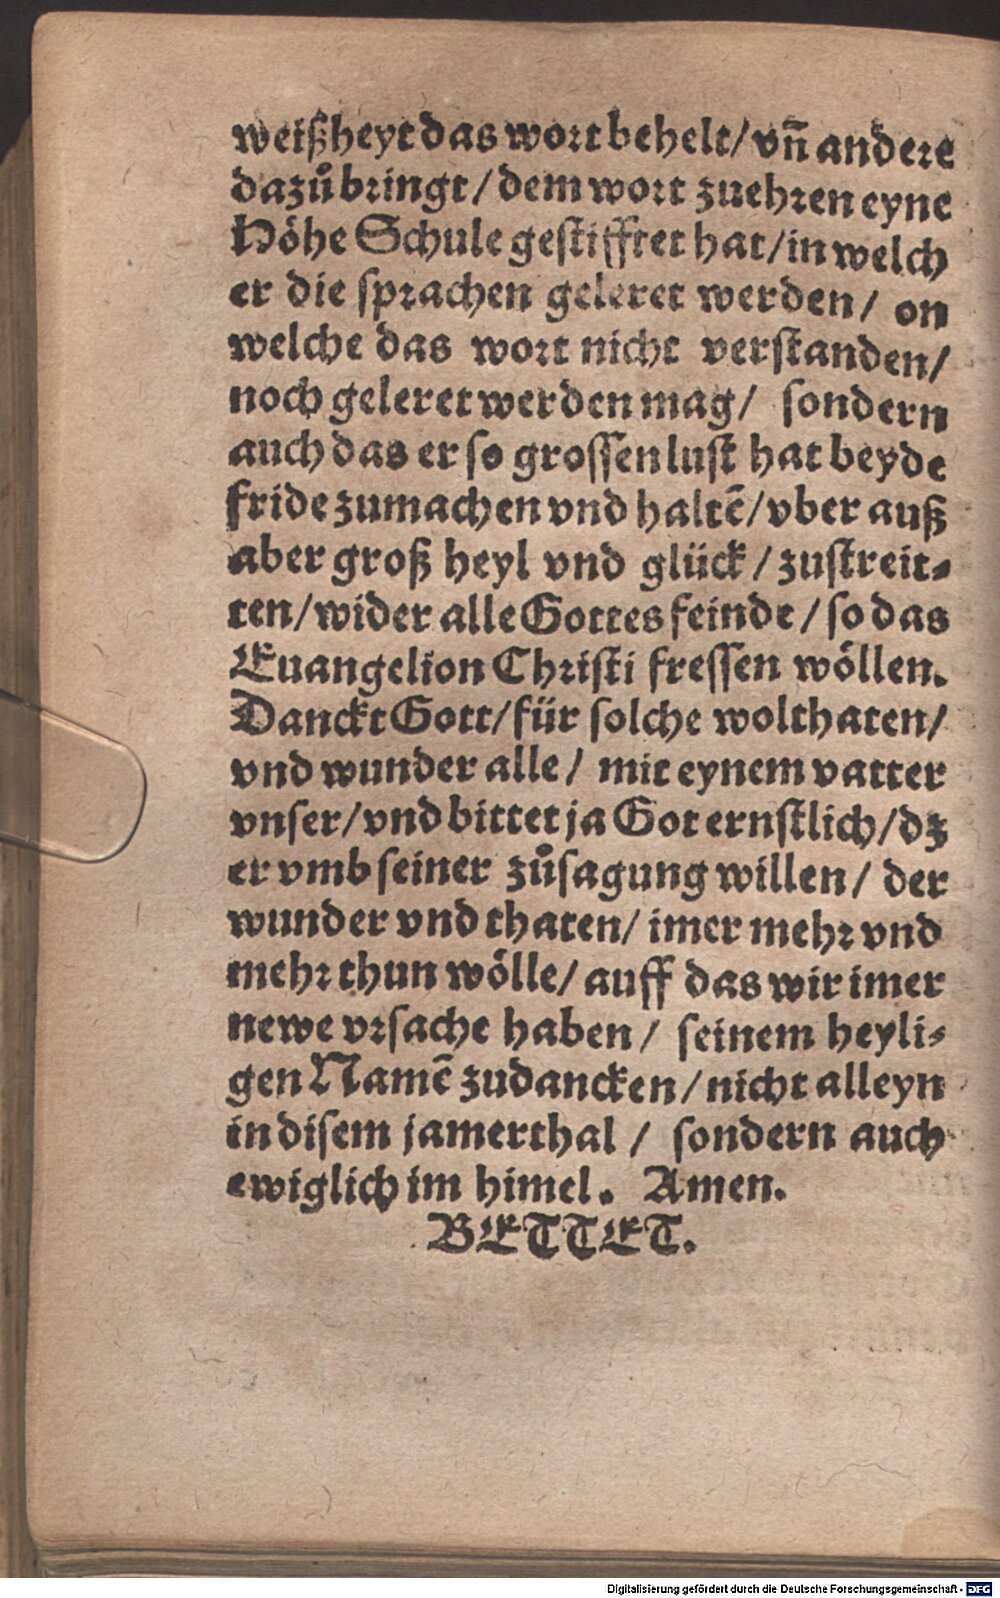 weißheyt das wort behelt/ vñ andere
dazů bringt/ dem wort zuehren eyne
Höhe Schule gestifftet hat/ in welch
er die sprachen geleret werden/ on
welche das wort nicht verstanden/
noch geleret werden mag/ sondern
auch das er so grossen lust hat beyde
fride zumachen vnd haltē/ vber auß
aber groß heyl vnd glück/ zustreit⸗
ten/ wider alle Gottes feinde/ so das
Euangelion Christi fressen wöllen.
Danckt Gott/ für solche wolthaten/
vnd wunder alle/ mit eynem vatter
vnser/ vnd bittet ja Got ernstlich/ dz
er vmb seiner zůsagung willen/ der
wunder vnd thaten/ imer mehr vnd
mehr thun wölle/ auff das wir imer
newe vrsache haben/ seinem heyli⸗
gen Namē zudancken/ nicht alleyn
in disem jamerthal/ sondern auch
ewiglich im himel. Amen.
BETTET.
Digitalisierung gefördert durch die Deutsche Forschungsgemeinschaft - DFG